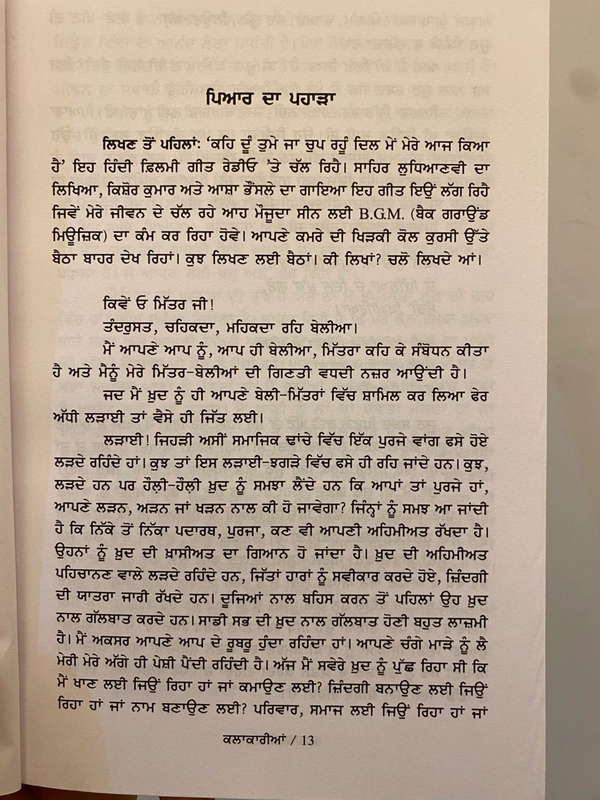 ਪਿਆਰ ਦਾ ਪਹਾੜਾ
ਲਿਖਣ ਤੋਂ ਪਹਿਲਾਂ: ‘ਕਹਿ ਦੂੰ ਤੁਮੇ ਜਾ ਚੁਪ ਰਹੂੰ ਦਿਲ ਮੇਂ ਮੇਰੇ ਆਜ ਕਿਆ
ਹੈ’ ਇਹ ਹਿੰਦੀ ਫ਼ਿਲਮੀ ਗੀਤ ਰੇਡੀਓ ’ਤੇ ਚੱਲ ਰਿਹੈ। ਸਾਹਿਰ ਲੁਧਿਆਣਵੀ ਦਾ
ਲਿਖਿਆ, ਕਿਸ਼ੋਰ ਕੁਮਾਰ ਅਤੇ ਆਸ਼ਾ ਭੌਂਸਲੇ ਦਾ ਗਾਇਆ ਇਹ ਗੀਤ ਇਉਂ ਲੱਗ ਰਿਹੈ
ਜਿਵੇਂ ਮੇਰੇ ਜੀਵਨ ਦੇ ਚੱਲ ਰਹੇ ਆਹ ਮੌਜੂਦਾ ਸੀਨ ਲਈ B.G.M. (ਬੈਕ ਗਰਾਉਂਡ
ਮਿਊਜ਼ਿਕ) ਦਾ ਕੰਮ ਕਰ ਰਿਹਾ ਹੋਵੇ। ਆਪਣੇ ਕਮਰੇ ਦੀ ਖਿੜਕੀ ਕੋਲ ਕੁਰਸੀ ਉੱਤੇ
ਬੈਠਾ ਬਾਹਰ ਦੇਖ ਰਿਹਾਂ। ਕੁਝ ਲਿਖਣ ਲਈ ਬੈਠਾਂ। ਕੀ ਲਿਖਾਂ? ਚਲੋ ਲਿਖਦੇ ਆਂ।
ਕਿਵੇਂ ਓ ਮਿੱਤਰ ਜੀ!
ਤੰਦਰੁਸਤ, ਚਹਿਕਦਾ, ਮਹਿਕਦਾ ਰਹਿ ਬੇਲੀਆ।
ਮੈਂ ਆਪਣੇ ਆਪ ਨੂੰ, ਆਪ ਹੀ ਬੇਲੀਆ, ਮਿੱਤਰਾ ਕਹਿ ਕੇ ਸੰਬੋਧਨ ਕੀਤਾ
ਹੈ ਅਤੇ ਮੈਨੂੰ ਮੇਰੇ ਮਿੱਤਰ-ਬੇਲੀਆਂ ਦੀ ਗਿਣਤੀ ਵਧਦੀ ਨਜ਼ਰ ਆਉਂਦੀ ਹੈ।
ਜਦ ਮੈਂ ਖ਼ੁਦ ਨੂੰ ਹੀ ਆਪਣੇ ਬੇਲੀ-ਮਿੱਤਰਾਂ ਵਿੱਚ ਸ਼ਾਮਿਲ ਕਰ ਲਿਆ ਫੇਰ
ਅੱਧੀ ਲੜਾਈ ਤਾਂ ਵੈਸੇ ਹੀ ਜਿੱਤ ਲਈ।
ਲੜਾਈ! ਜਿਹੜੀ ਅਸੀਂ ਸਮਾਜਿਕ ਢਾਂਚੇ ਵਿੱਚ ਇੱਕ ਪੁਰਜੇ ਵਾਂਗ ਫਸੇ ਹੋਏ
ਲੜਦੇ ਰਹਿੰਦੇ ਹਾਂ। ਕੁਝ ਤਾਂ ਇਸ ਲੜਾਈ-ਝਗੜੇ ਵਿੱਚ ਫਸੇ ਹੀ ਰਹਿ ਜਾਂਦੇ ਹਨ। ਕੁਝ,
ਲੜਦੇ ਹਨ ਪਰ ਹੌਲੀ-ਹੌਲੀ ਖ਼ੁਦ ਨੂੰ ਸਮਝਾ ਲੈਂਦੇ ਹਨ ਕਿ ਆਪਾਂ ਤਾਂ ਪੁਰਜੇ ਹਾਂ,
ਆਪਣੇ ਲੜਨ, ਅੜਨ ਜਾਂ ਖੜਨ ਨਾਲ ਕੀ ਹੋ ਜਾਵੇਗਾ? ਜਿੰਨ੍ਹਾਂ ਨੂੰ ਸਮਝ ਆ ਜਾਂਦੀ
ਹੈ ਕਿ ਨਿੱਕੇ ਤੋਂ ਨਿੱਕਾ ਪਦਾਰਥ, ਪੁਰਜਾ, ਕਣ ਵੀ ਆਪਣੀ ਅਹਿਮੀਅਤ ਰੱਖਦਾ ਹੈ।
ਉਹਨਾਂ ਨੂੰ ਖ਼ੁਦ ਦੀ ਖ਼ਾਸੀਅਤ ਦਾ ਗਿਆਨ ਹੋ ਜਾਂਦਾ ਹੈ। ਖ਼ੁਦ ਦੀ ਅਹਿਮੀਅਤ
ਪਹਿਚਾਨਣ ਵਾਲੇ ਲੜਦੇ ਰਹਿੰਦੇ ਹਨ, ਜਿੱਤਾਂ ਹਾਰਾਂ ਨੂੰ ਸਵੀਕਾਰ ਕਰਦੇ ਹੋਏ, ਜ਼ਿੰਦਗੀ
ਦੀ ਯਾਤਰਾ ਜਾਰੀ ਰੱਖਦੇ ਹਨ। ਦੂਜਿਆਂ ਨਾਲ ਬਹਿਸ ਕਰਨ ਤੋਂ ਪਹਿਲਾਂ ਉਹ ਖ਼ੁਦ
ਨਾਲ ਗੱਲਬਾਤ ਕਰਦੇ ਹਨ। ਸਾਡੀ ਸਭ ਦੀ ਖ਼ੁਦ ਨਾਲ ਗੱਲਬਾਤ ਹੋਣੀ ਬਹੁਤ ਲਾਜ਼ਮੀ
ਹੈ। ਮੈਂ ਅਕਸਰ ਆਪਣੇ ਆਪ ਦੇ ਰੂਬਰੂ ਹੁੰਦਾ ਰਹਿੰਦਾ ਹਾਂ। ਆਪਣੇ ਚੰਗੇ ਮਾੜੇ ਨੂੰ ਲੈ
ਮੇਰੀ ਮੇਰੇ ਅੱਗੇ ਹੀ ਪੇਸ਼ੀ ਪੈਂਦੀ ਰਹਿੰਦੀ ਹੈ। ਅੱਜ ਮੈਂ ਸਵੇਰੇ ਖ਼ੁਦ ਨੂੰ ਪੁੱਛ ਰਿਹਾ ਸੀ ਕਿ
ਮੈਂ ਖਾਣ ਲਈ ਜਿਉਂ ਰਿਹਾ ਹਾਂ ਜਾਂ ਕਮਾਉਣ ਲਈ? ਜ਼ਿੰਦਗੀ ਬਨਾਉਣ ਲਈ ਜਿਉਂ
ਰਿਹਾ ਹਾਂ ਜਾਂ ਨਾਮ ਬਣਾਉਣ ਲਈ? ਪਰਿਵਾਰ, ਸਮਾਜ ਲਈ ਜਿਉਂ ਰਿਹਾ ਹਾਂ ਜਾਂ
ਕਲਾਕਾਰੀਆਂ / 13